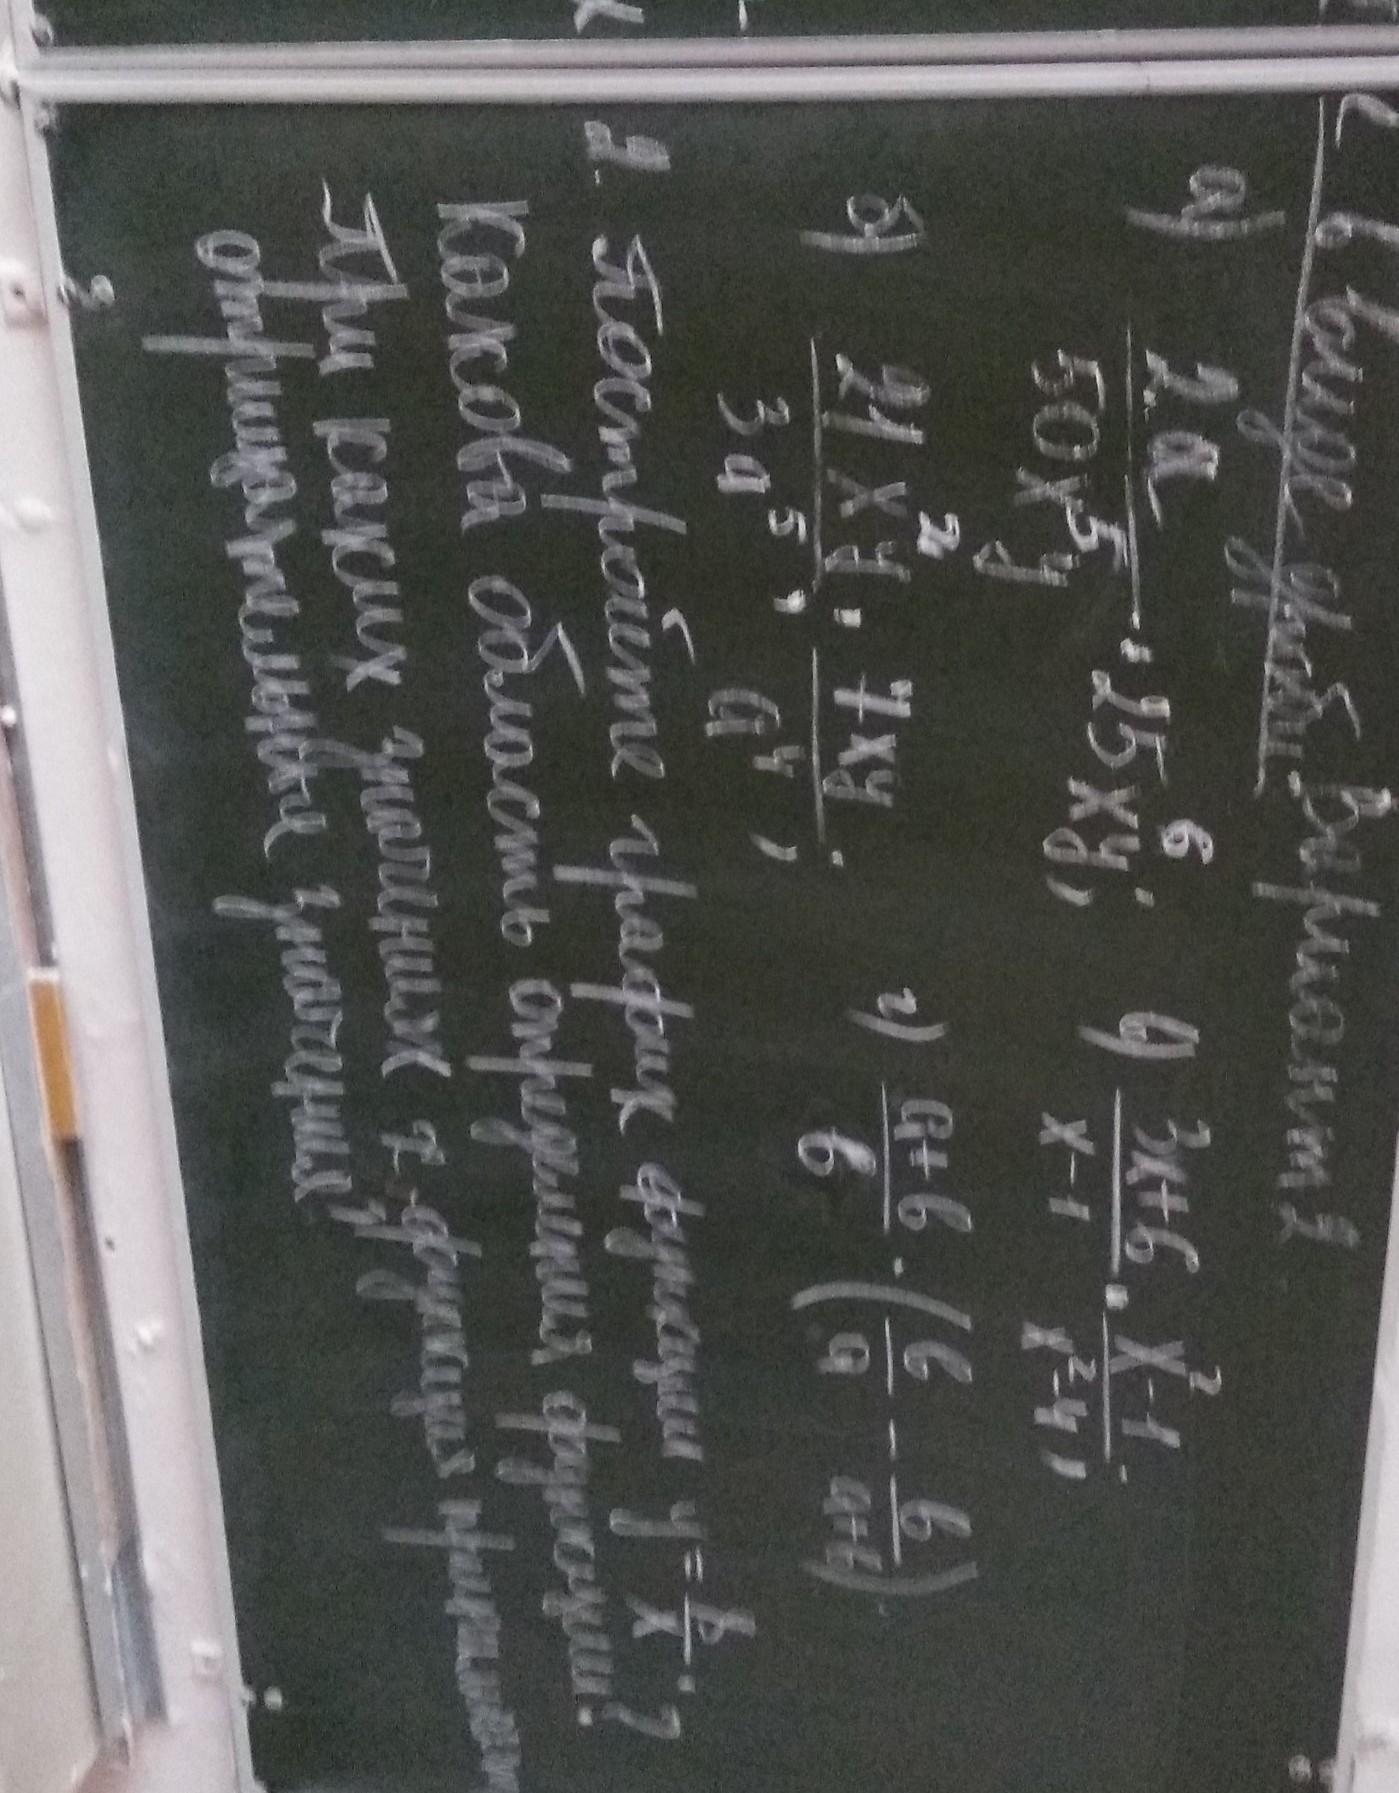 в виде дроби. Вариант 2
а) 2a/50x⁵y · 25xy⁶; в) (3x+6)/(x-1) · (x²-1)/(x²-4);
б) 21x²y/3a⁵ : 7xy/a⁴; г) (a+b)/b · (b/a - b/(a+b))
2. Постройте график функции y = /x.
Какова область определения функции?
При каких значениях x функция принимает
отрицательные значения